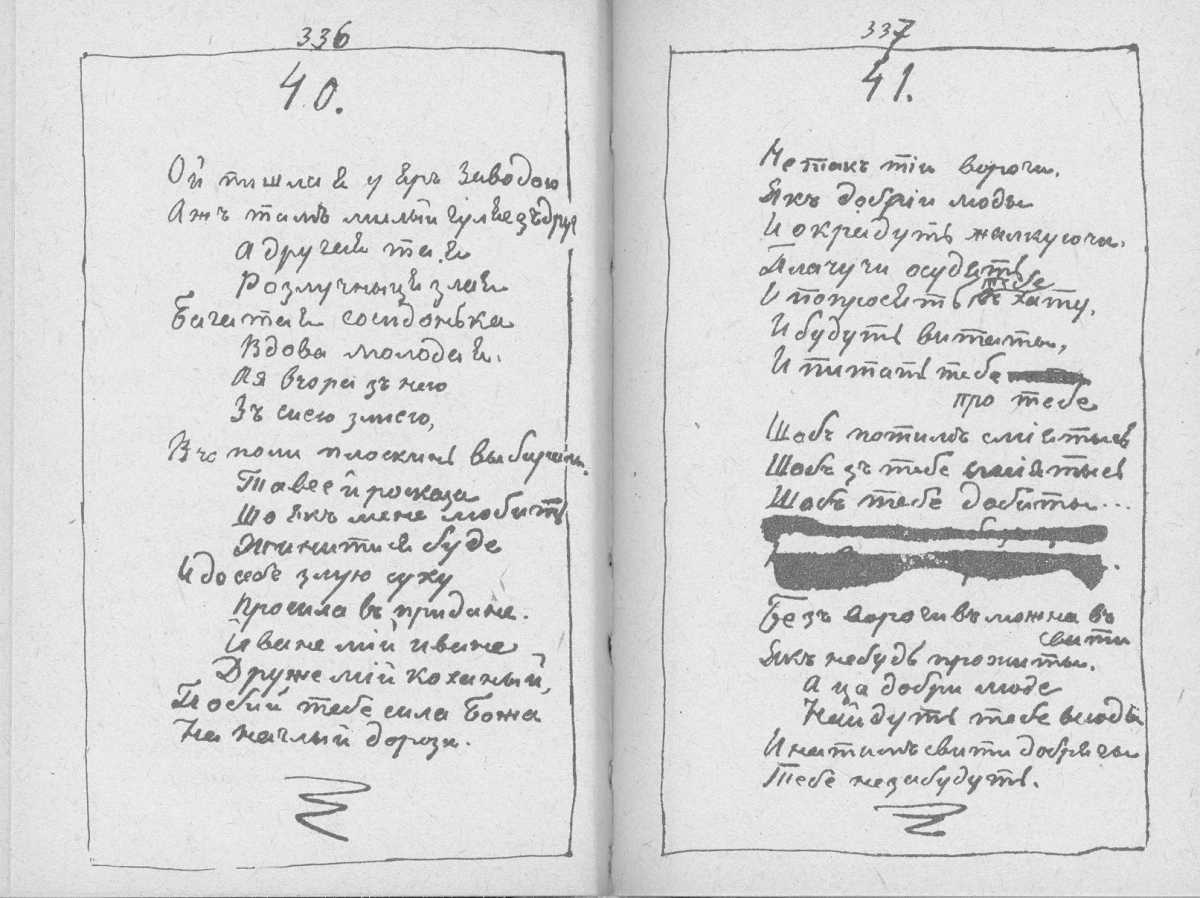 336
40.
Ой пишла я у яръ заводою
Ажъ тамъ милый гуляе зъдруг
А другая тая
Розлучныця злая
Багатая сосидонька
Вдова молодая.
А я вчора зъ нею
Зъ сиею змиею,
Въ поли плоскинь выбирали.
Тавсе й росказа
Шо якъ мене любить
Женитися буде
И до себе злую суку
Просила въ придане.
Иване мій иване
Друже мій коханый,
Побий тебе сила божа
На наглый дорози.
337
41.
Не такъ тіи вороги.
Якъ добріи люды
И окрадуть жалкуючи.
Плачучи осудять
тебе
И попросять въ хату,
И будуть витаты,
И питать тебе
про тебе
Щобъ потимъ сміятысь
Щобъ зъ тебе сміятысь
Щобъ тебе добиты...
Безъ ворогивъ можна въ
свити
Якъ небудь прожиты.
А ца добри люде
Найдуть тебе всюды
И натимъ свити добряги
Тебе незабудуть.